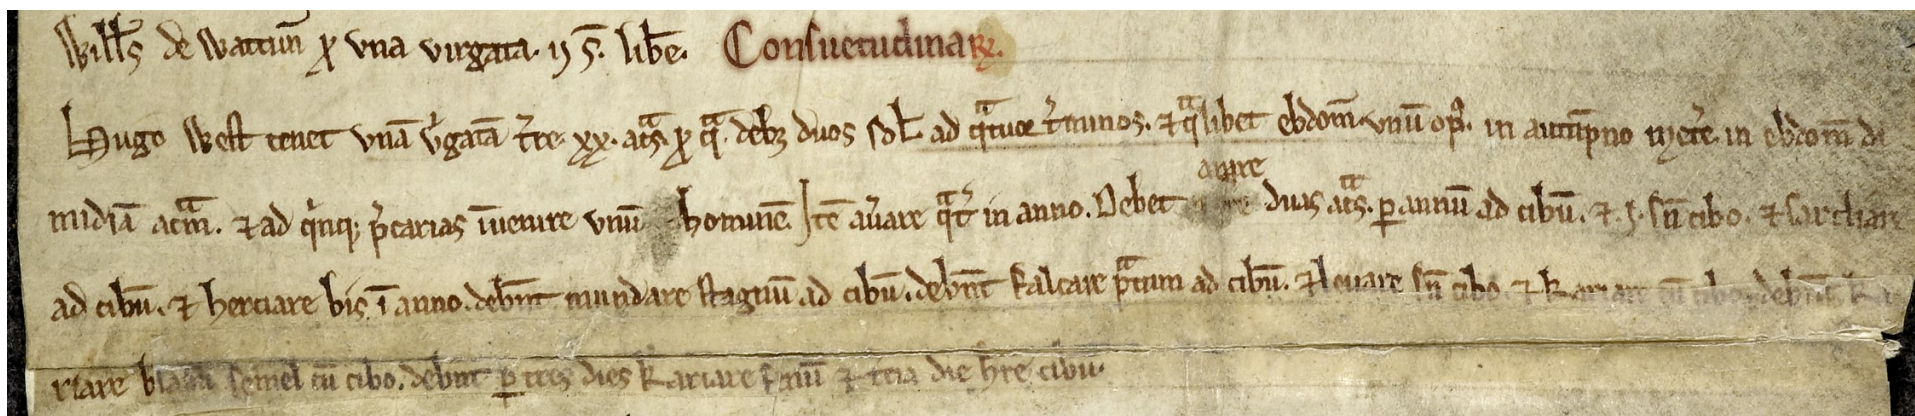 Willꝉs de Wattun̄ ꝓ vna virgata. ij s̄. libe̅. Consuetudinaꝝ.
Hugo West tenet vnā v̓gatā t̓re. xx. acᵃs. ꝓ qᵃ. debꝫ duos sol̄ ad qᵃtuor t̓minos. ⁊ qᵃlibet ebdom̄. vnū op̓. in autūpno met̓e. in ebdom̄ di
midiā acᵃm. ⁊ ad q̓nqꝫ p̓carias īuenire vnū hominē. Itē au̓are qᵃt̓ in anno. Debet arare duas acᵃs. ꝑ annū ad cibū. ⁊ .j. sn̄ cibo. ⁊ sarclare
ad cibū. ⁊ herciare bis ī anno. debn̄t mundare stagnū ad cibū. debn̄t falcare pᵃtum ad cibū. ⁊ leuare sn̄ cibo. ⁊ kariare cū cibo. debn̄t ka
riare bladū semel cū cibo. debn̄t ꝑ tres dies kariare f̓nū ⁊ t̓cia die hr̄e cibū.